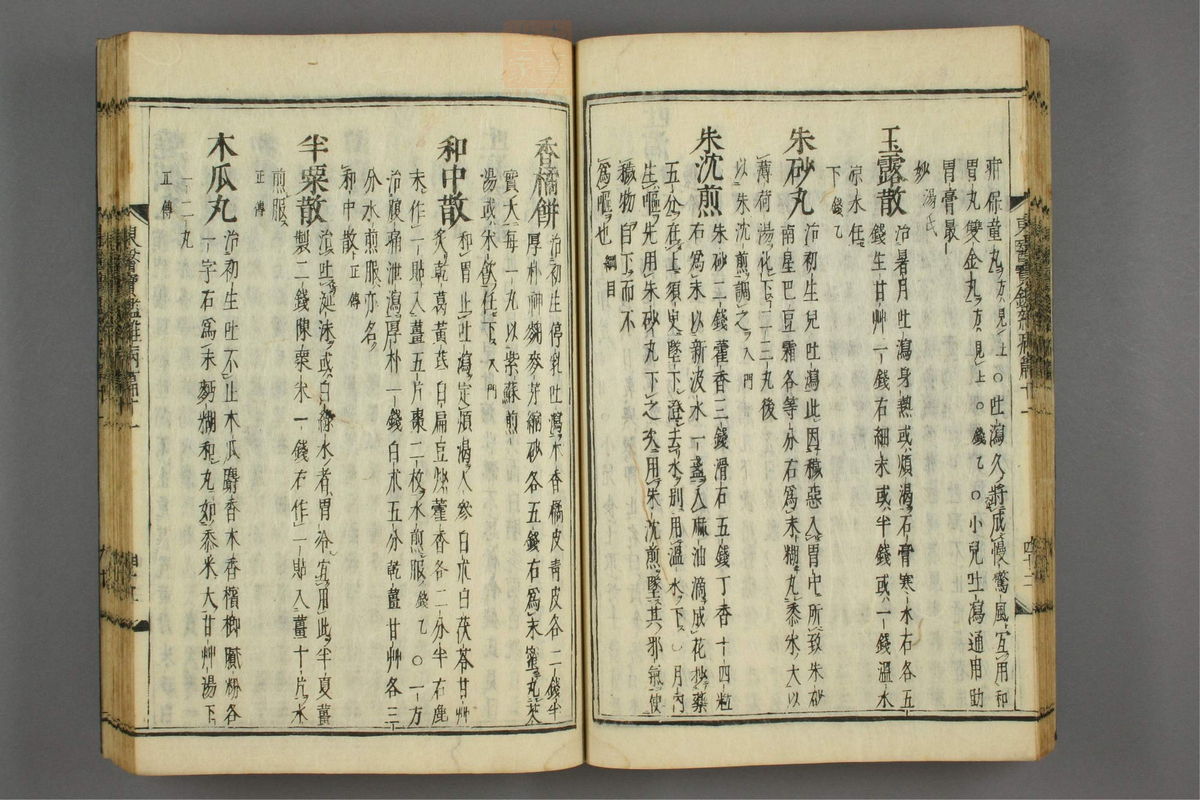 脾保童丸方見上○吐瀉久將成慢驚風宜用和
胃丸雙金丸方見上○錢乙○小兒吐瀉通用助
胃膏最
妙湯氏
玉露散 治暑月吐瀉身熱或煩渴石膏寒水石各五
錢生甘艸一錢右細末或半錢或一錢溫水
凉水任
下錢乙
朱砂丸 治初生兒吐瀉此因穢惡入胃中所致朱砂
南星巴豆霜各等分右爲末糊丸黍米大以
薄荷湯化下二三丸後
以朱沈煎調之入門
朱沈煎 朱砂二錢藿香三錢滑石五錢丁香十四粒
右爲末以新汲水一盞入麻油滴成花抄藥
五分在上須臾墜下澄去水別用溫水下○月內
生嘔先用朱砂丸下之次用朱沈煎墜其邪氣使
穢物自下而不
爲嘔也綱目
香橘餠 治初生停乳吐瀉木香橘皮靑皮各二錢半
厚朴神麴麥芽縮砂各五錢右爲末蜜丸芡
實大每一丸以紫蘇煎
湯或米飮任下入門
和中散 和胃止吐瀉定煩渴人參白朮白茯苓甘艸
炙乾葛黃芪白扁豆炒藿香各二分半右麄
末作一貼入薑五片棗二枚水煎服錢乙○一方
治腹痛泄瀉厚朴一錢白朮五分乾薑甘艸各三
分水煎服亦名
和中散正傳
半粟散 治吐涎沫或白綠水者胃冷宜用此半夏薑
製二錢陳粟米一錢右作一貼入薑十片水
煎服
正傳
木瓜丸 治初生吐不止木瓜麝香木香檳榔膩粉各
一字右爲末麪糊和丸如黍米大甘艸湯下
一二丸
正傳
東醫寶鑑雜病篇十一
四十二
東醫寶鑑雜病篇十一